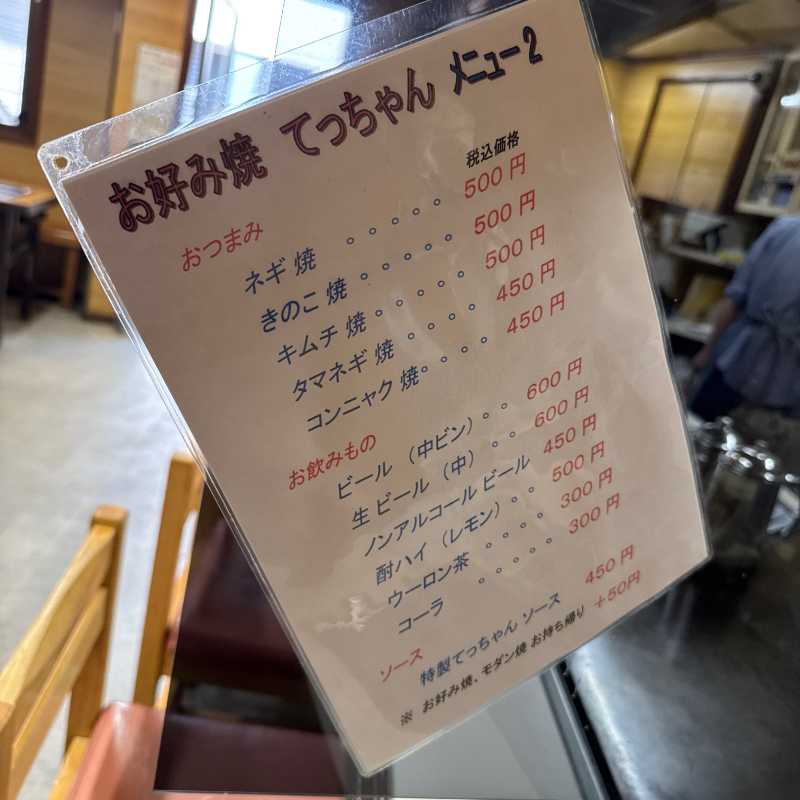 お好み焼 てっちゃん メニュー2
税込価格
おつまみ
ネギ 焼 。。。。。 500 円
きのこ 焼 。。。。。 500 円
キムチ 焼 。。。。。 500 円
タマネギ 焼 。。。。 450 円
コンニャク 焼。。。。 450 円
お飲みもの
ビール （中ビン）。。 600 円
生 ビール （中） 。。 600 円
ノンアルコール ビール 450 円
酎ハイ （レモン）。。 500 円
ウーロン茶 。。。。 300 円
コーラ 。。。。。 300 円
ソース
特製てっちゃん ソース 450 円
※ お好み焼、モダン焼 お持ち帰り ＋50円